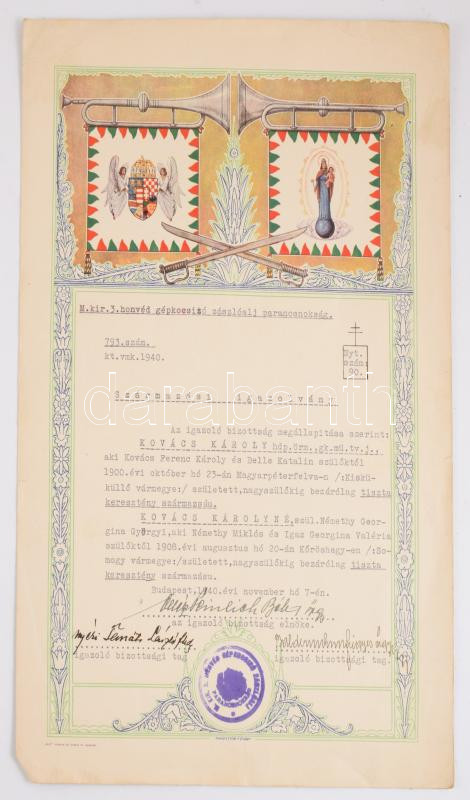 M.kir.3.honvéd gépkocsizó zászlóalj parancsnokság.
793.szám.
kt.vmk.1940.
Nyt.
szám:
90.
Származási igazolvány
Az igazoló bizottság megállapítása szerint:
KOVÁCS KÁROLY
aki Kovács Ferenc Károly és Delle Katalin szülőktől
1900.évi október hó 23-án Magyarpéterfalva-n /:Kiskü-
küllő vármegye:/ született,nagyszülőkig bezárólag tiszta
keresztény származású.
KOVÁCS KÁROLYNÉ,szül.Némethy Geor-
gina Györgyi,aki Némethy Miklós és Igaz Georgina Valéria
szülőktől 1908.évi augusztus hó 20-án Kőröshegy-en /:So-
mogy vármegye:/ született,nagyszülőkig bezárólag tiszta
keresztény származású.
Budapest,1940.évi november hó 7-én.
az igazoló bizottság elnöke.
igazoló bizottsági tag
igazoló bizottsági tag.
darabanth